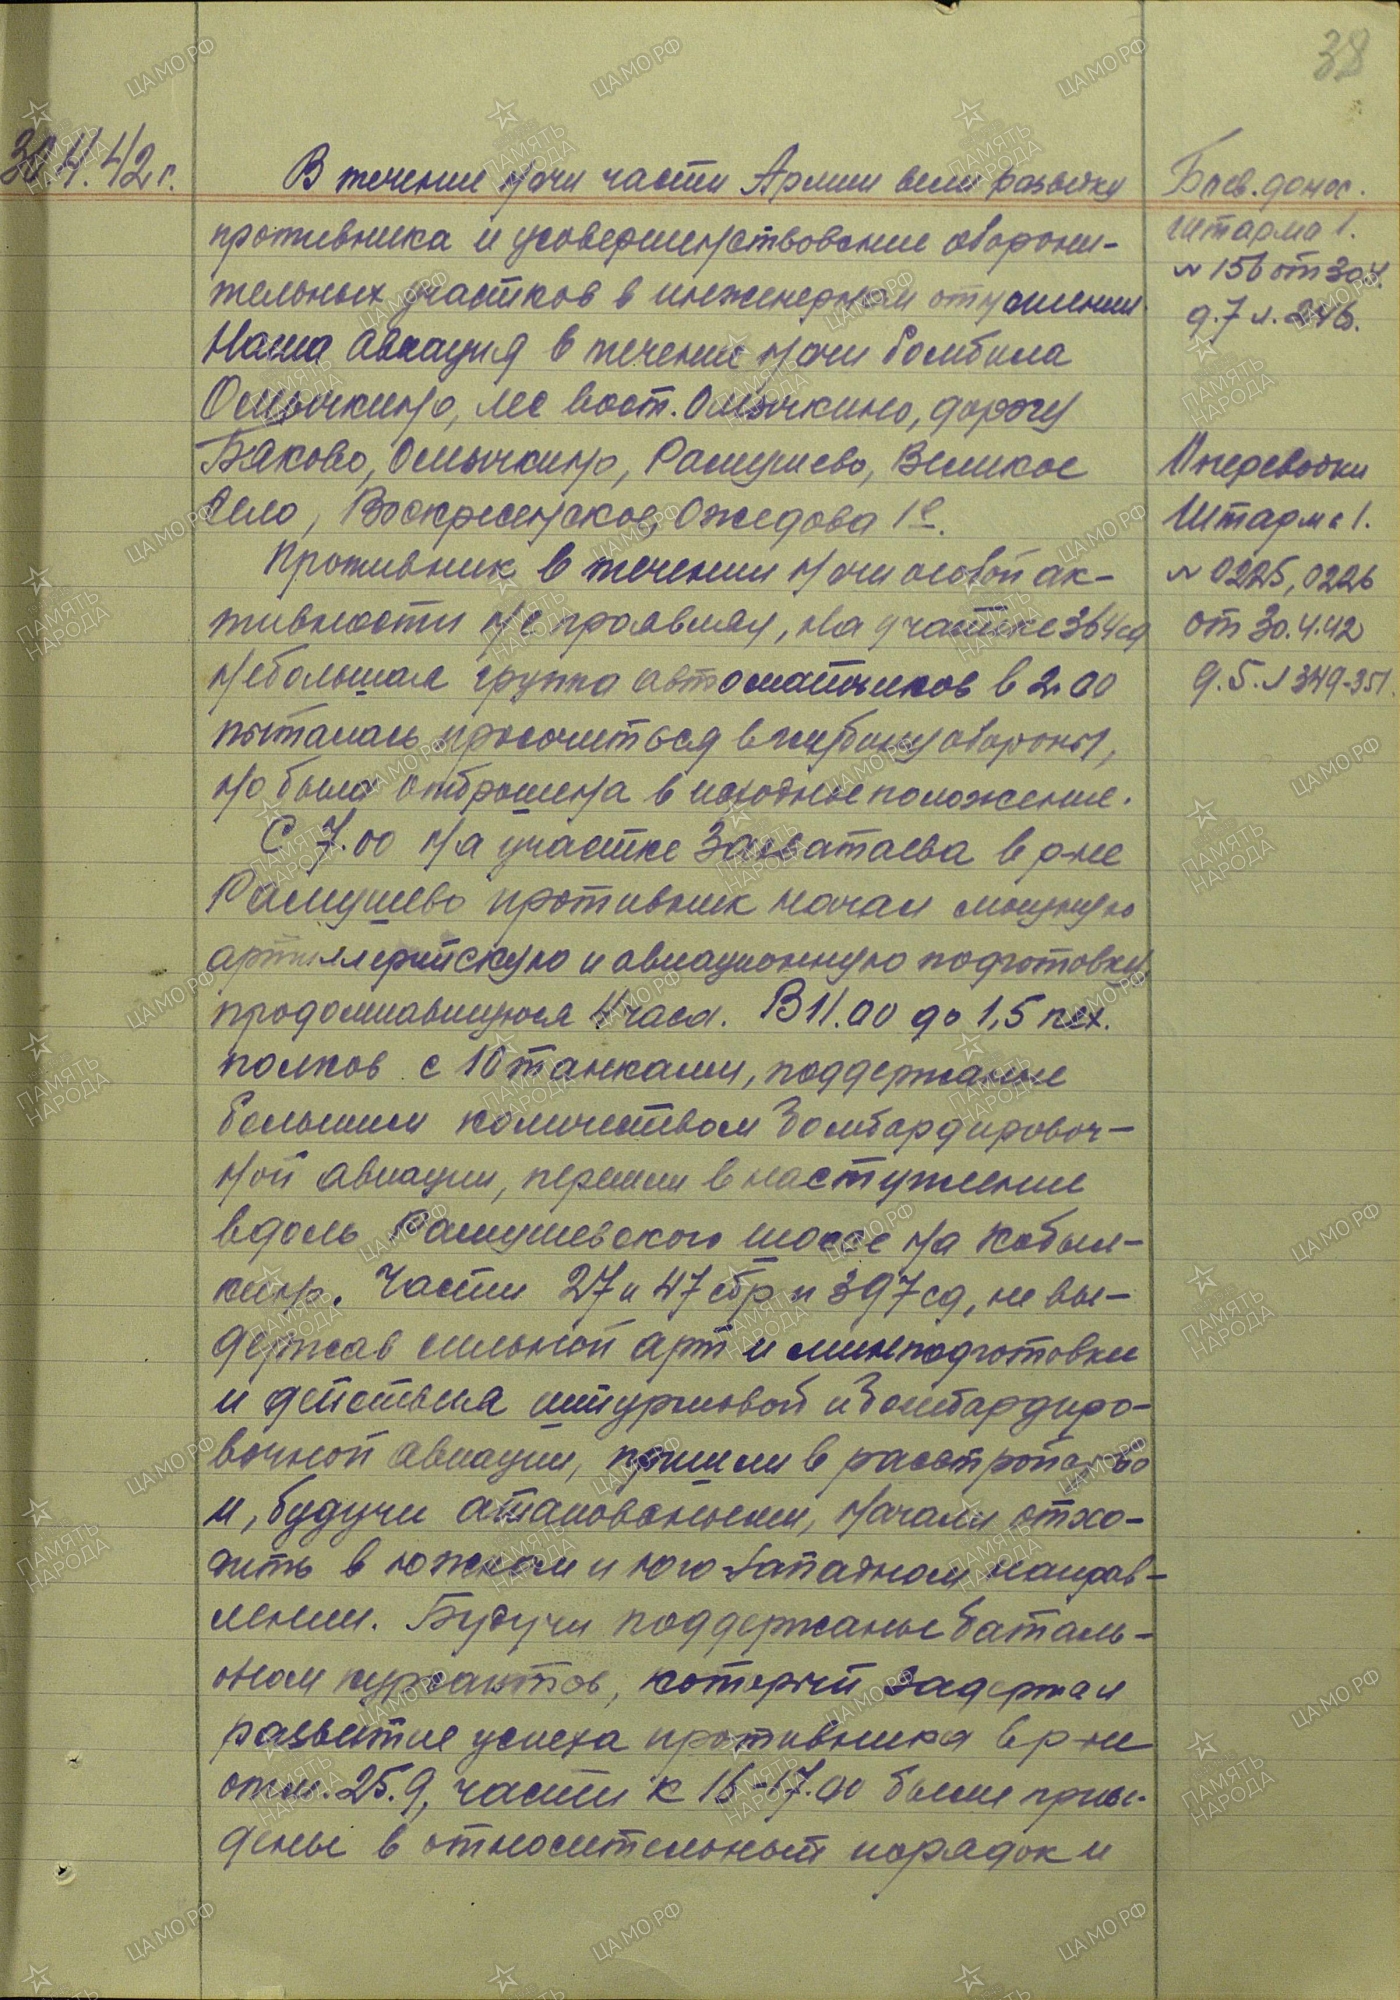 38
30.4.42 г.
В течение ночи части Армии вели разведку
противника и усовершенствование оборони-
тельных участков в инженерном отношении.
Наша авиация в течение ночи бомбила
Омычкино, лес вост. Омычкино, дорогу
Бяково, Омычкино, Рамушево, Великое
Село, Воскресенское, Ожедова 1е.
Противник в течении ночи особой ак-
тивности не проявлял, на участке 364 сд
небольшая группа автоматчиков в 2.00
пыталась просочиться в глубину обороны,
но была отброшена в исходные положение.
С 7.00 на участке Захватаева в р-не
Рамушево противник начал мощную
артиллерийскую и авиационную подготовку
продолжавшуюся 4 часа. В 11.00 до 1,5 пех.
полков с 10 танками, поддержанные
большим количеством бомбардировоч-
ной авиации, перешли в наступление
вдоль Рамушевского шоссе на Кобыл-
кино. Части 27 и 47 сбр и 397 сд, не вы-
держав сильной арт и минподготовки
и действия штурмовой и бомбардиро-
вочной авиации, пришли в расстройство
и, будучи атакованными, начали отхо-
дить в южном и юго западном направ-
лении. Будучи поддержаные баталь-
оном курсантов, который задержал
развитие успеха противника в р-не
отм. 25.9, части к 16-17.00 были приве-
дены в относительный порядок и
Боев. донос.
Штарма 1.
№ 156 от 30.4.
д.7 л. 246.
Оперсводки
Штарма 1.
№ 0225, 0226
от 30.4.42
д.5. л 349-351
ЦАМО.РФ
ПАМЯТЬ НАРОДА